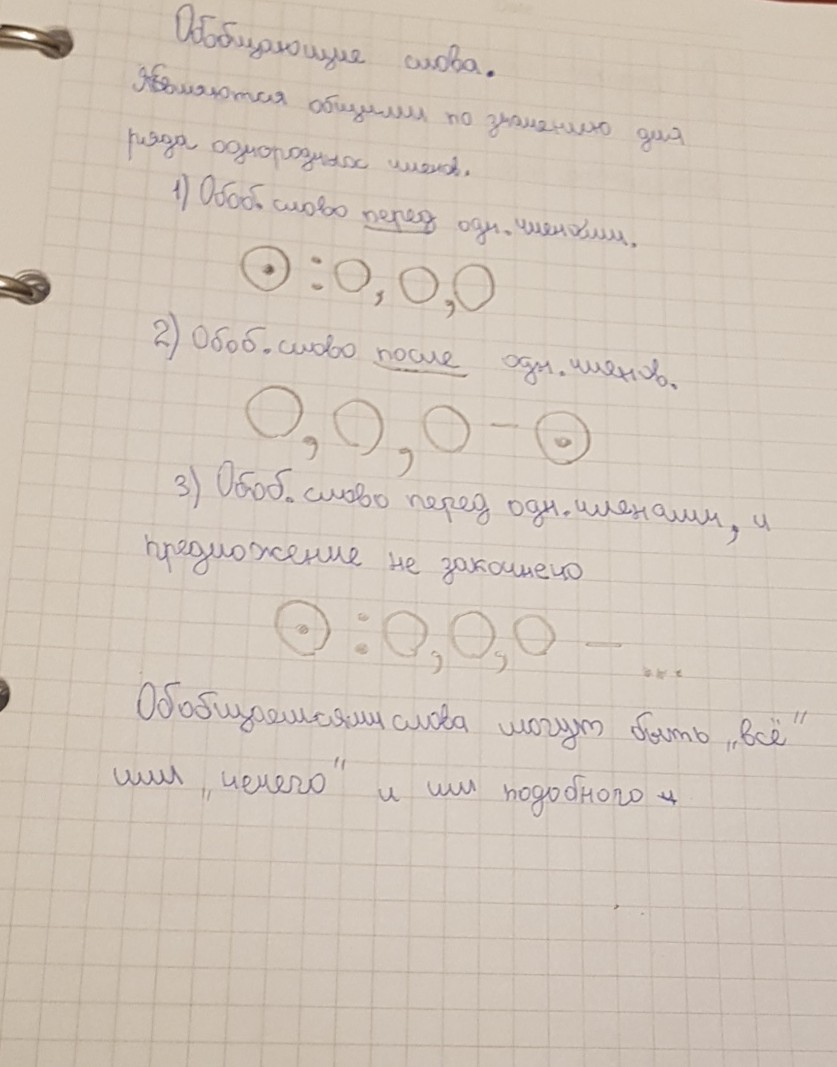 Обобщающие слова.
Являются общими по значению для
ряда однородных членов.
1) Обоб. слово перед одн. членами.
⊙ : О, О, О
2) Обоб. слово после одн. членов.
О, О, О – ⊙
3) Обоб. слово перед одн. членами, и
предложение не закончено
⊙ : О, О, О – ...
слова могут быть „всё"
или и им подобного